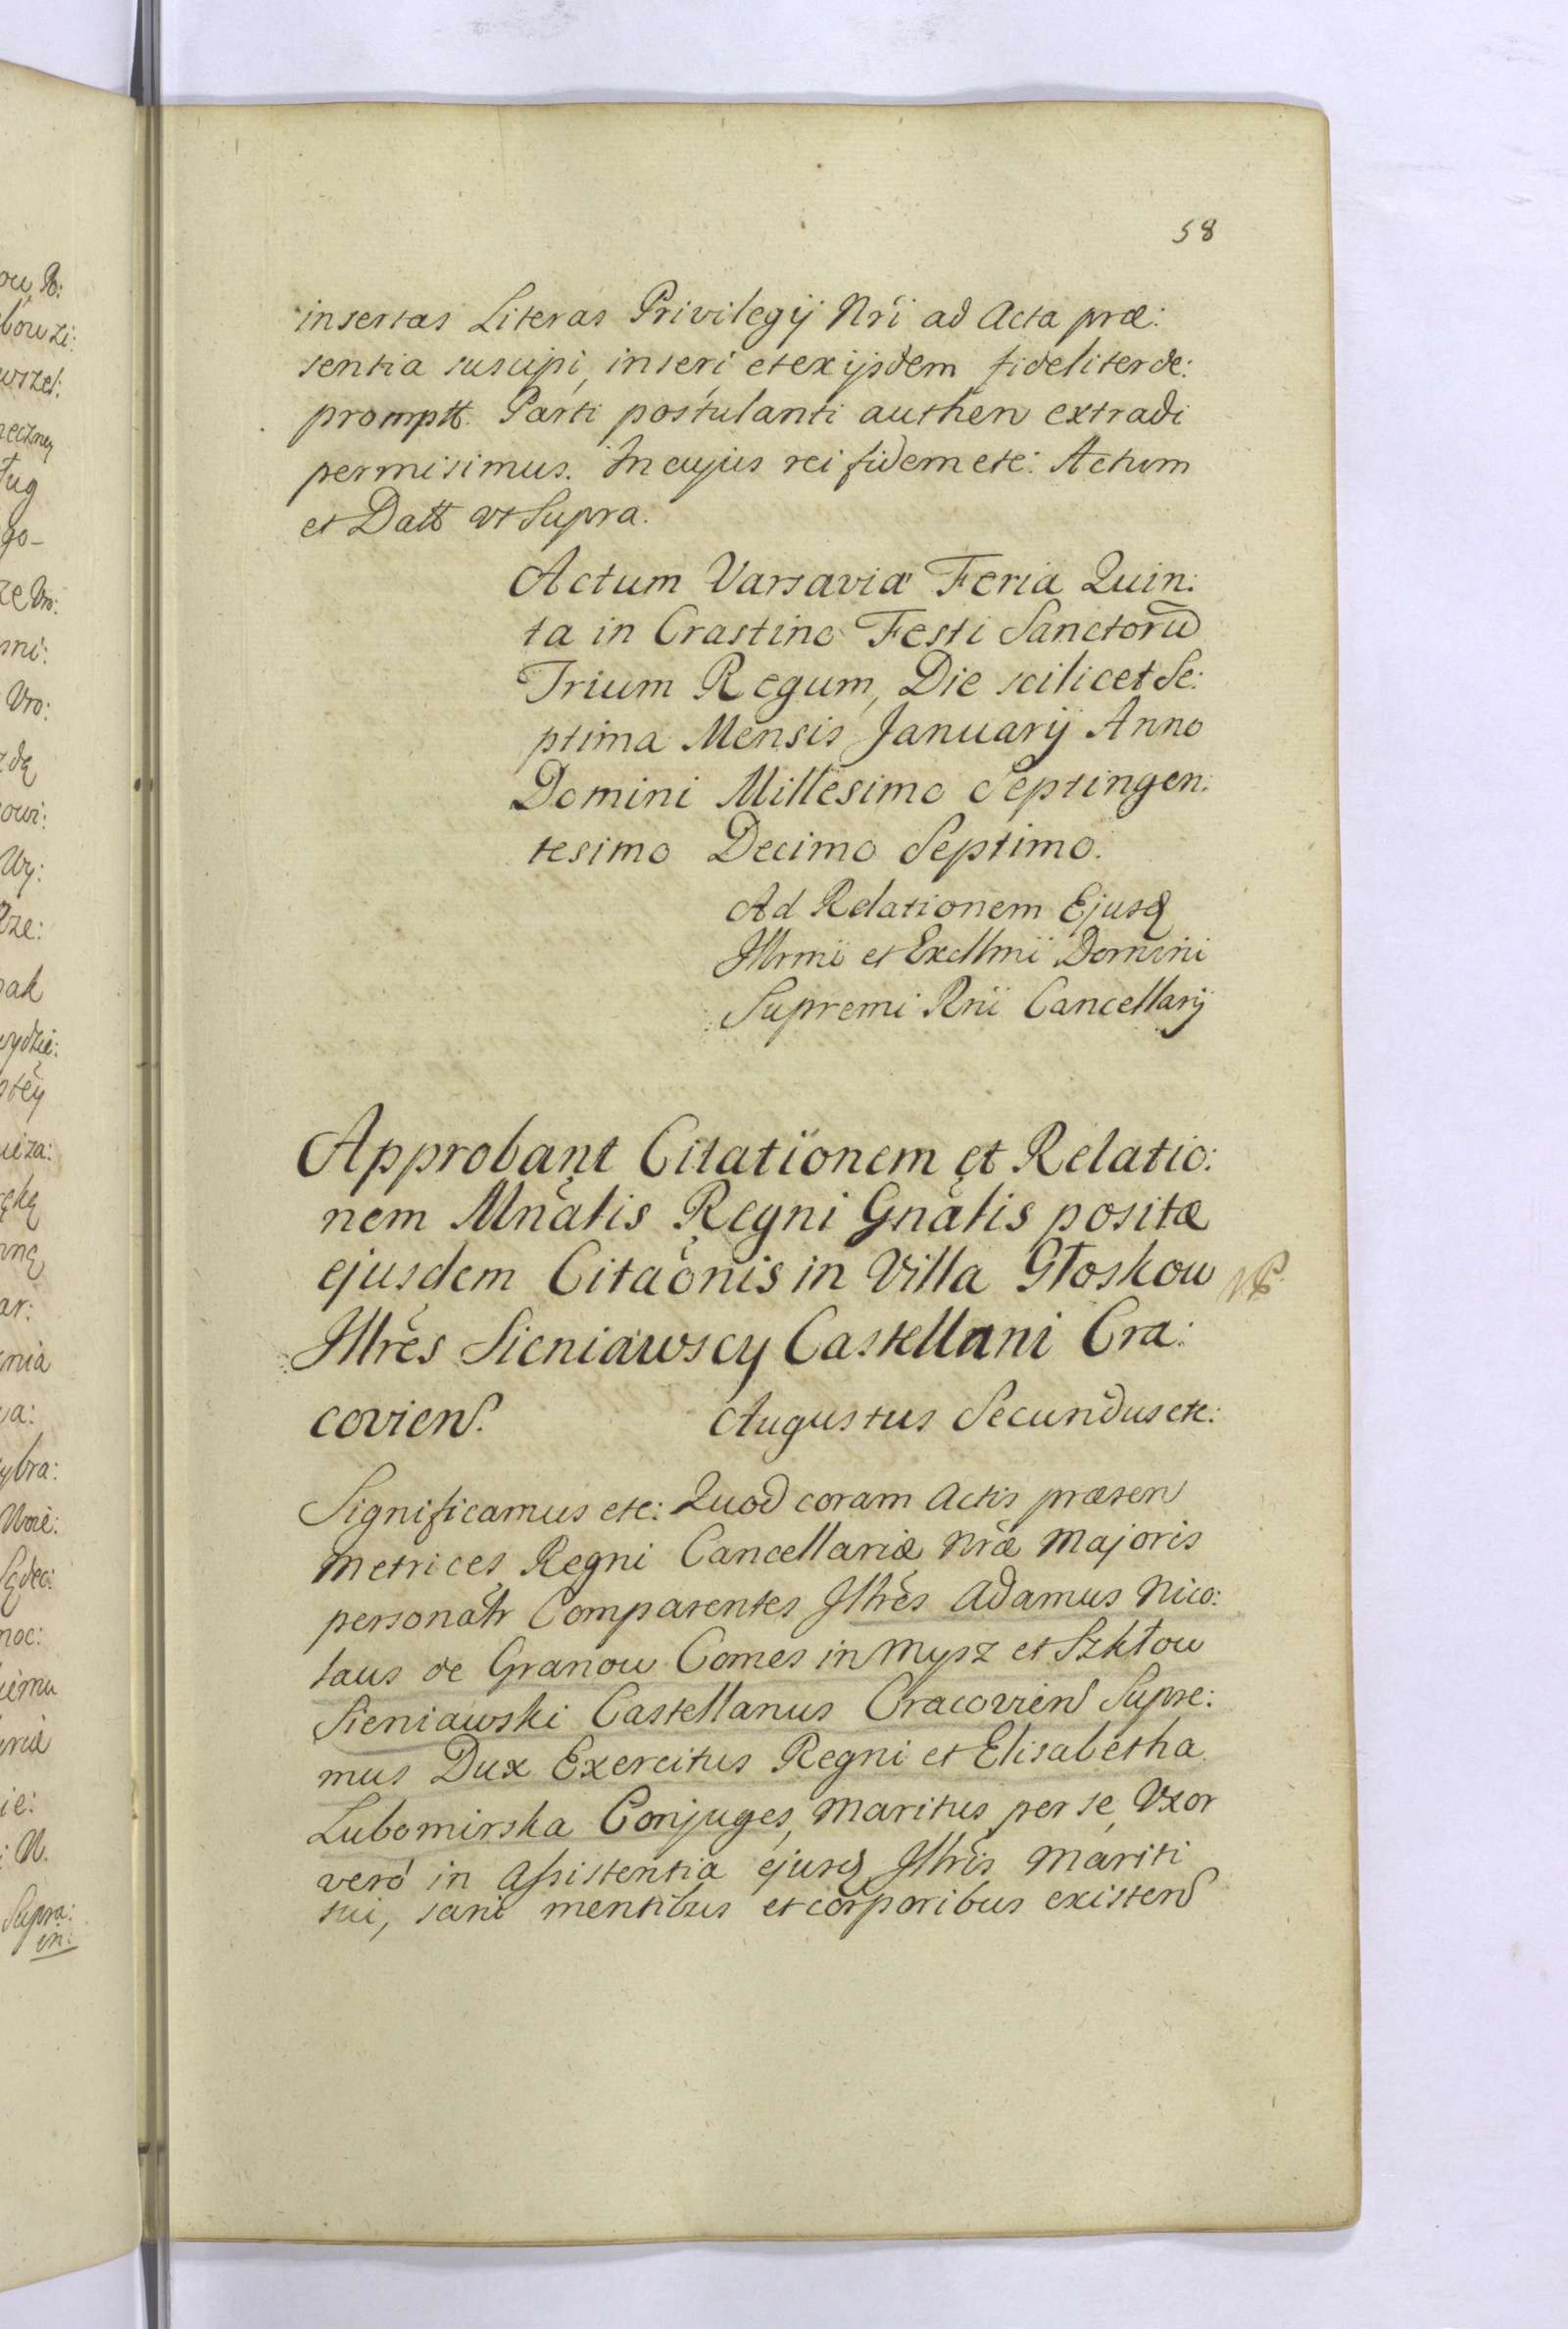 58
insertas Literas Privilegij Nrï ad Acta præ:
sentia suscipi, inseri et ex ijsdem fideliter de:
promptt Parti postulanti authen extradi
permisimus. In cujus rei fidem etc: Actum
et Datt vt Supra.
Actum Varsaviæ Feria Quin:
ta in Crastino Festi Sanctorū
Trium Regum, Die scilicet Se:
ptima Mensis Januarij Anno
Domini Millesimo Septingen:
tesimo Decimo Septimo.
Ad Relationem Ejusq
Illrmi et Excllmi Domini
Supremi Rnï Cancellarij
Approbant Citationem et Relatio:
nem Mnalis Regni Gnalis positæ
ejusdem Citaonis in Villa Głoskow
Illres Sieniawscy Castellani Cra:
coviens. Augustus Secundus etc:
Significamus etc: Quod coram Actis præsen
Metrices Regni Cancellariæ Nræ Majoris
personatr Comparentes Illres Adamus Nico:
laus de Granow Comes in Mysz et Szkłow
Sieniawski Castellanus Cracovien Supre:
mus Dux Exercitus Regni et Elisabetha
Lubomirska Conjuges, Maritus per se, Vxor
verò in Assistentia ejusq Illris Mariti
sui, sani mentibus et corporibus existen
ou, Ro:
ług
go-
Vro:
owi:
Wy:
ar:
nia
ie:
Supra: